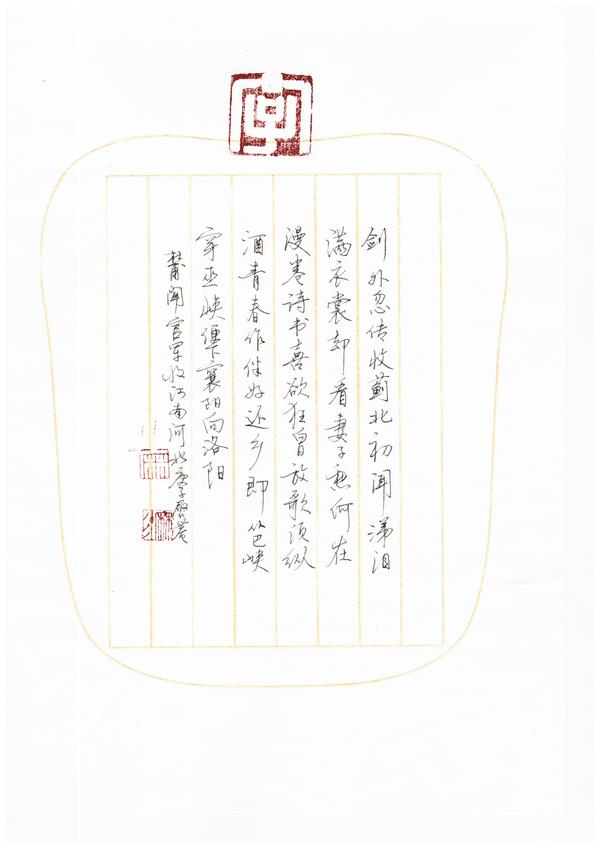 剑外忽传收蓟北初闻涕泪
满衣裳却看妻子愁何在
漫卷诗书喜欲狂白日放歌须纵
酒青春作伴好还乡即从巴峡
穿巫峡便下襄阳向洛阳
杜甫闻官军收河南河北